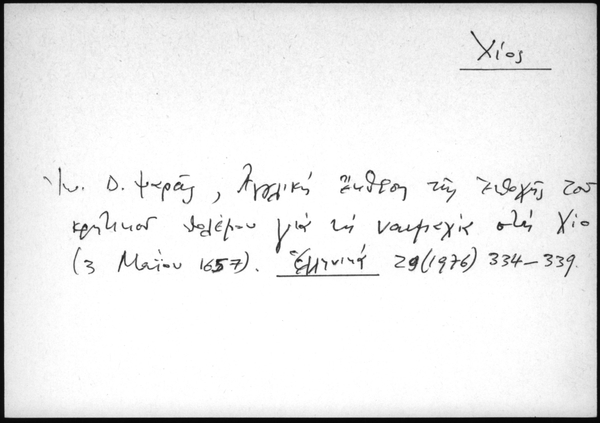 Χίος
Ἰω. Δ. Ψαρᾶς, Ἀγγλική ἔκθεση τῆς ἐποχῆς τοῦ
κρητικοῦ πολέμου γιά τή ναυμαχία στή Χίο
(3 Μαΐου 1657). Ἑλληνικά 29 (1976) 334–339.